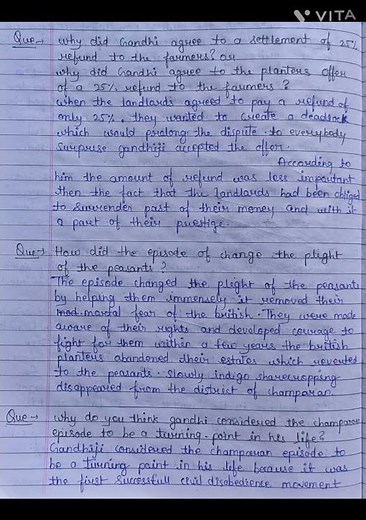 VITA
Que→ why did Gandhi agree to a settlement of 25%
refund to the farmers? or
why did Gandhi agree to the planters offer
of a 25% refund to the farmers?
when the landlords agreed to pay a refund of
only 25%, they wanted to create a deadlock
which would prolong the dispute. to everybody
surprise gandhiji accepted the offer.
According to
him the amount of refund was less important
then the fact that the landlords had been obliged
to surrender part of their money and with it
a part of their prestige.
Que→ How did the episode of change the plight
of the peasants?
The episode changed the plight of the peasants
by helping them immensely it removed their
mortal fear of the british. They were made
aware of their rights and developed courage to
fight for them within a few years the british
planters abandoned their estates which reverted
to the peasants. Slowly indigo sharecropping
disappeared from the district of champaran.
Que→ why do you think gandhi considered the champaran
episode to be a turning-point in his life?
Gandhiji considered the champaran episode to
be a turning point in his life because it was
the first successfull civil disobedience movement